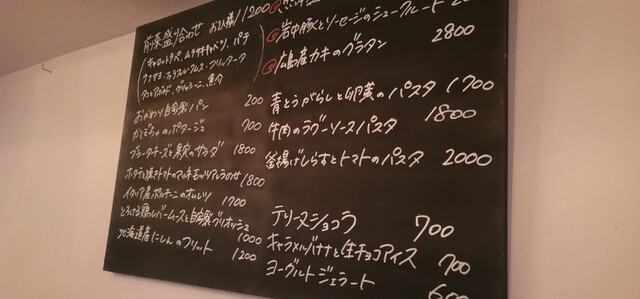 前菜盛り合わせ お1人様 1200
(キャロットラペ、ムラサキキャベツ、パテ
フリッタータ
グリッシーニ、魚介
おかわり自家製パン 200
かぼちゃのポタージュ 700
ブラータチーズと果実のサラダ 1800
ホタテと焼きトマトのマルモッツァレラのせ 1800
イタリア産ポルチーニのオムレツ 1700
とろける鶏レバームースと自家製ブリオッシュ 1000
北海道産にしんのフリット 1200
岩中豚とソーセージのシュークルート
広島産カキのグラタン 2800
青とうがらしと卵黄のパスタ 1700
牛肉のラグーソースパスタ 1800
釜揚げしらすとトマトのパスタ 2000
テリーヌショコラ 700
キャラメルバナナと生チョコアイス 700
ヨーグルトジェラート 600